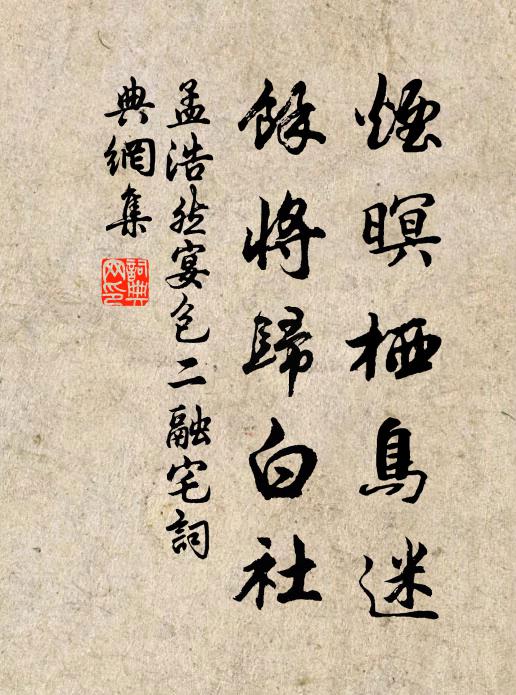 煙暝栖鳥迷
餘將歸白社
孟浩然宴包二融宅詞
典網集
詞典網印